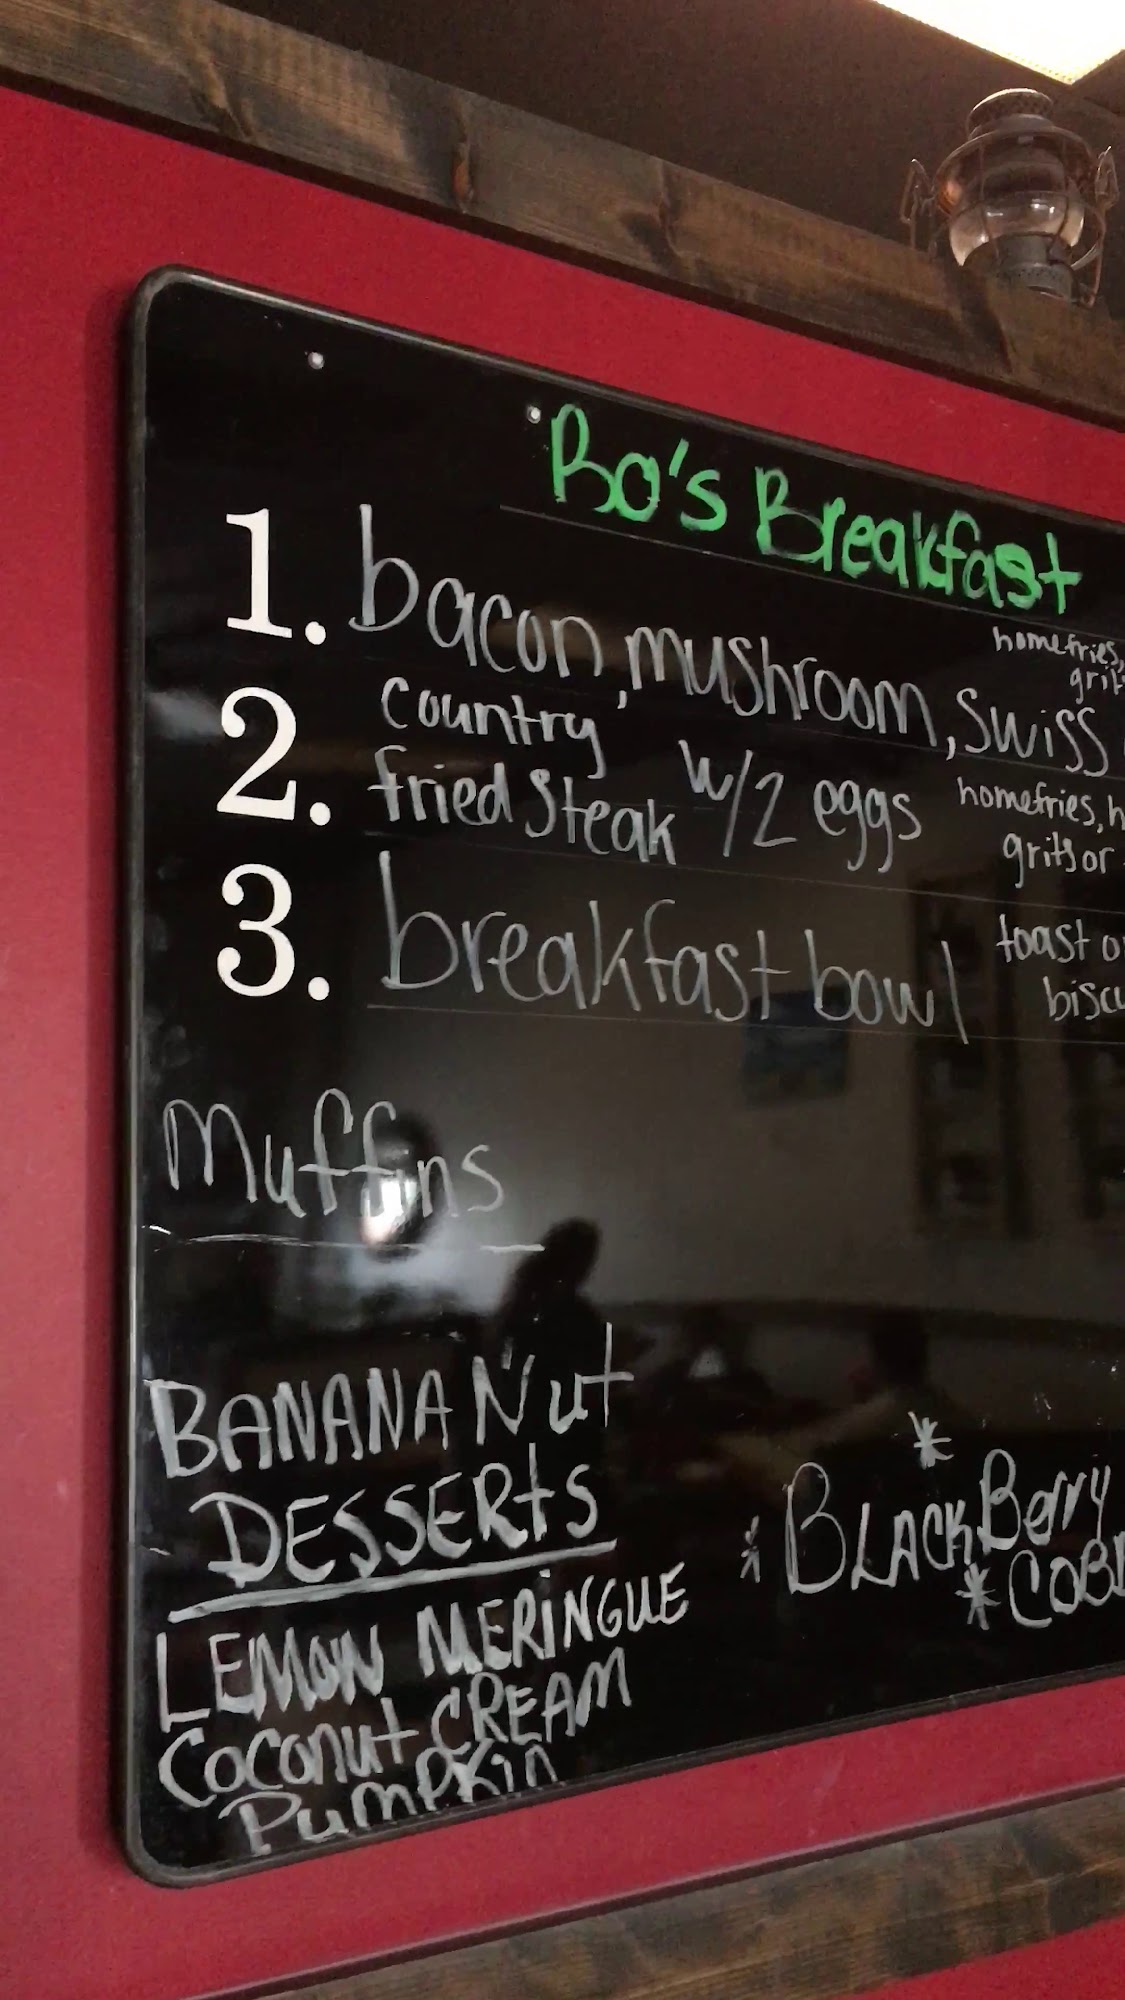 Bo's Breakfast
1. bacon, mushroom, Swiss
homefries,
2. country
fried Steak w/2 eggs
homefries,
grits or
3. breakfast bowl
toast
Muffins
BANANA Nut
DESSERTS
LEMON MERINGUE
Coconut CREAM
PumPKin
*
* BLACKBerry
*